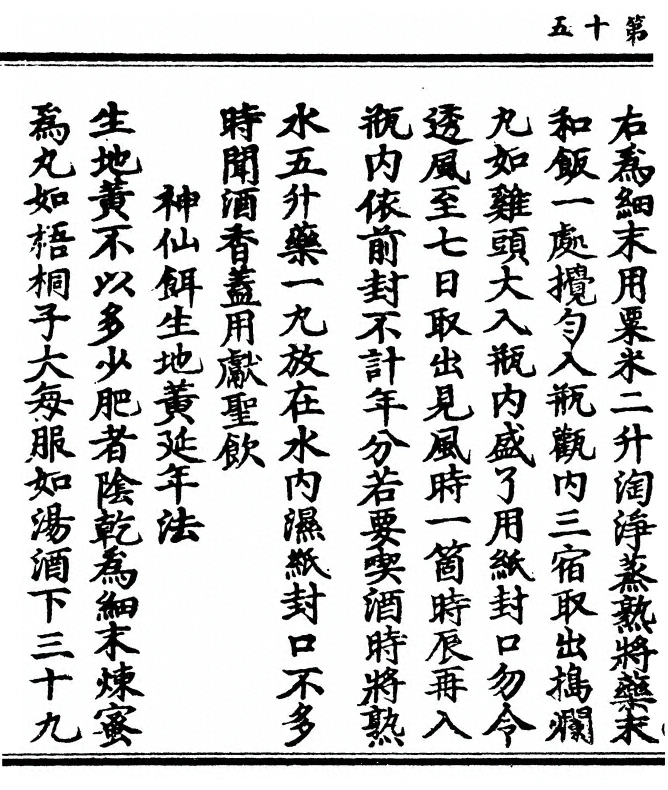 第十五
右為細末用粟米二升淘淨蒸熟將藥末
和飯一處攪勻入瓶甕內三宿取出搗爛
丸如雞頭大入瓶內盛了用紙封口勿令
透風至七日取出見風時一箇時辰再入
瓶內依前封不計年分若要喫酒時將熟
水五升藥一丸放在水內濕紙封口不多
時聞酒香蓋用獻聖飲
神仙餌生地黃延年法
生地黃不以多少肥者陰乾為細末煉蜜
為丸如梧桐子大每服如湯酒下三十九